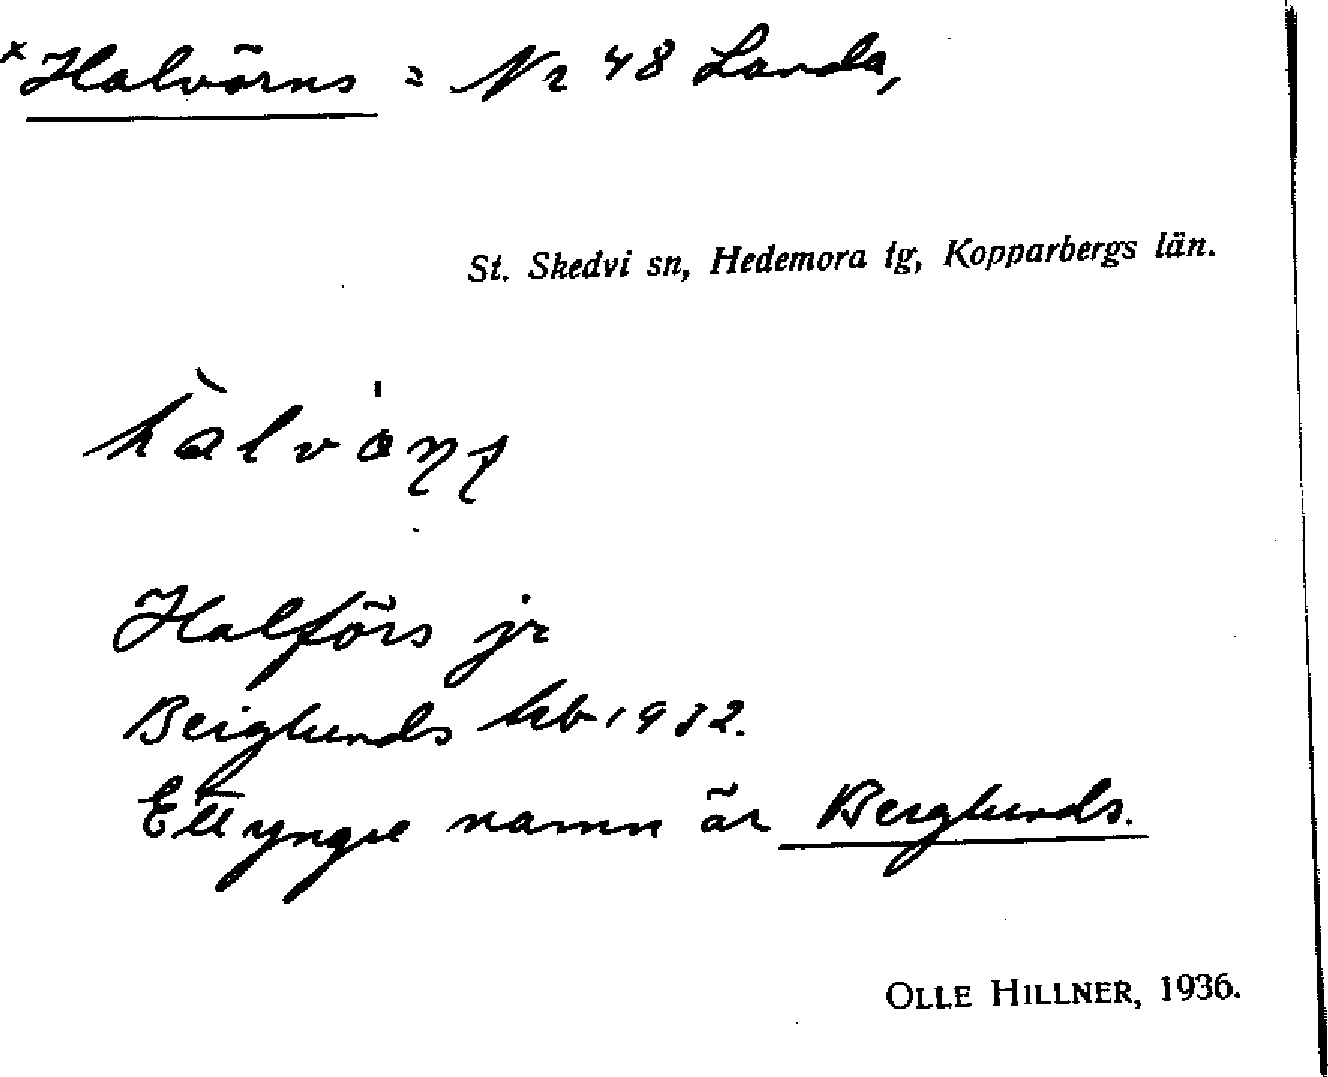 *Halvörns = Nr 48 Landa,
St. Skedvi sn, Hedemora tg, Kopparbergs län.
Halförs jr
Berglunds kb 1932.
Ett yngre namn är Berglunds.
OLLE HILLNER, 1936.